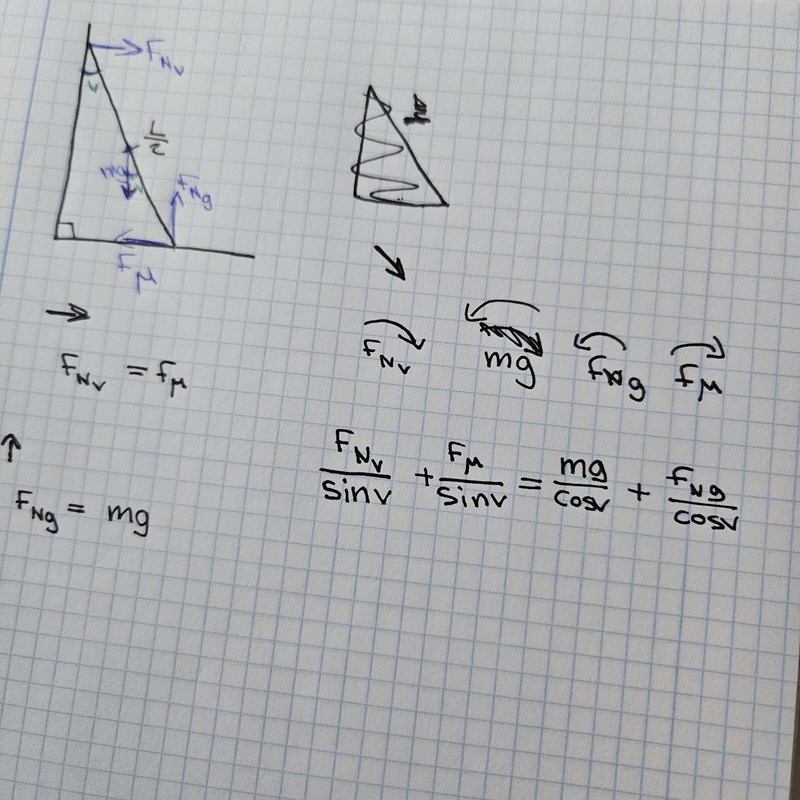 F_Nv
v
L/2
mg
F_Ng
F_μ
→
F_Nv = F_μ
↑
F_Ng = mg
F_Nv mg F_Ng F_μ
F_Nv/sinv + F_μ/sinv = mg/cosv + F_Ng/cosv